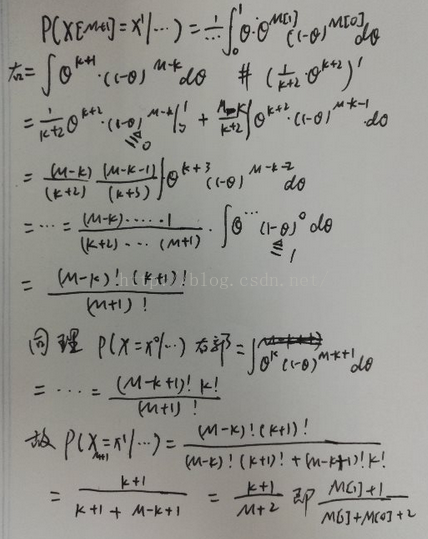 P(X[M+1]=x¹|...) = 1/... ∫₀¹ θ·θ^{M[1]} (1-θ)^{M[0]} dθ
右= ∫ θ^{k+1}·(1-θ)^{M-k} dθ # (1/(k+2) θ^{k+2})'
= 1/(k+2) θ^{k+2}·(1-θ)^{M-k}|₀¹ + (M-k)/(k+2) ∫ θ^{k+2}·(1-θ)^{M-k-1}·dθ
0
= (M-k)/(k+2) (M-k-1)/(k+3) ∫ θ^{k+3} (1-θ)^{M-k-2} dθ
= ... = (M-k)......1/((k+2)...(M+1)) · ∫ θ^{...} (1-θ)⁰ dθ
1
= (M-k)! (k+1)!/(M+1)!
http://blog.csdn.net/
同理 P(X=x⁰|...) 右部 = ∫ θ^k (1-θ)^{M-k+1} dθ
= ... = (M-k+1)! k!/(M+1)!
故 P(X_{M+1}=x¹|...) = (M-k)! (k+1)!/((M-k)! (k+1)! + (M-k+1)! k!)
= (k+1)/(k+1+M-k+1) = (k+1)/(M+2) 即 (M[1]+1)/(M[1]+M[0]+2)